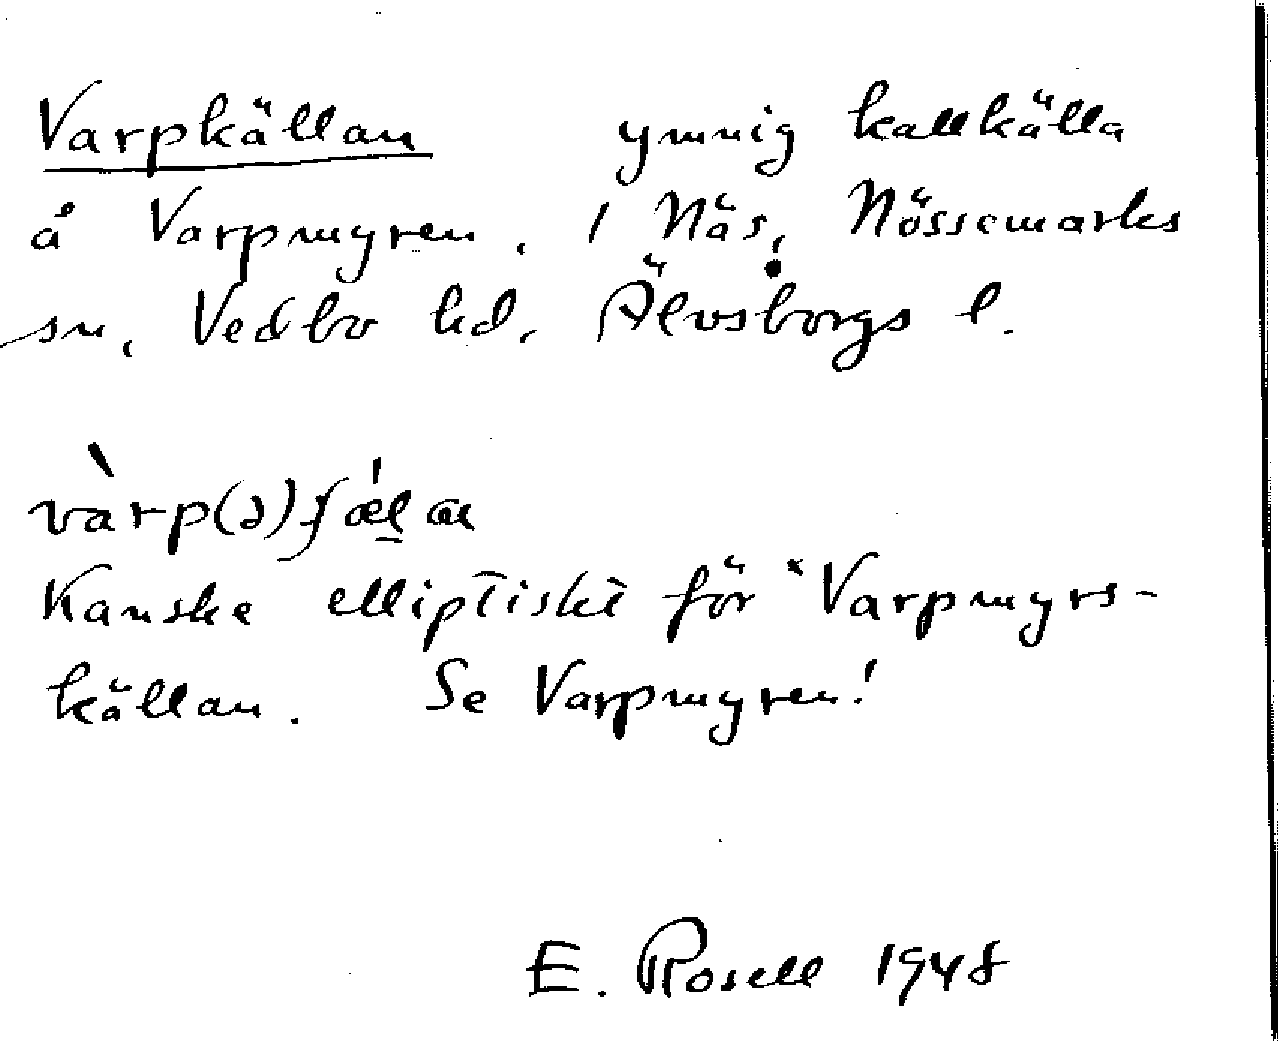 Varpkällan ymnig kallkälla
å Varpmyren. I Näs, Nössemarks
sn, Vedbo hd, Älvsborgs l.
Kanske elliptiskt för *Varpmyrs-
källan. Se Varpmyren!
E. Rosell 1948